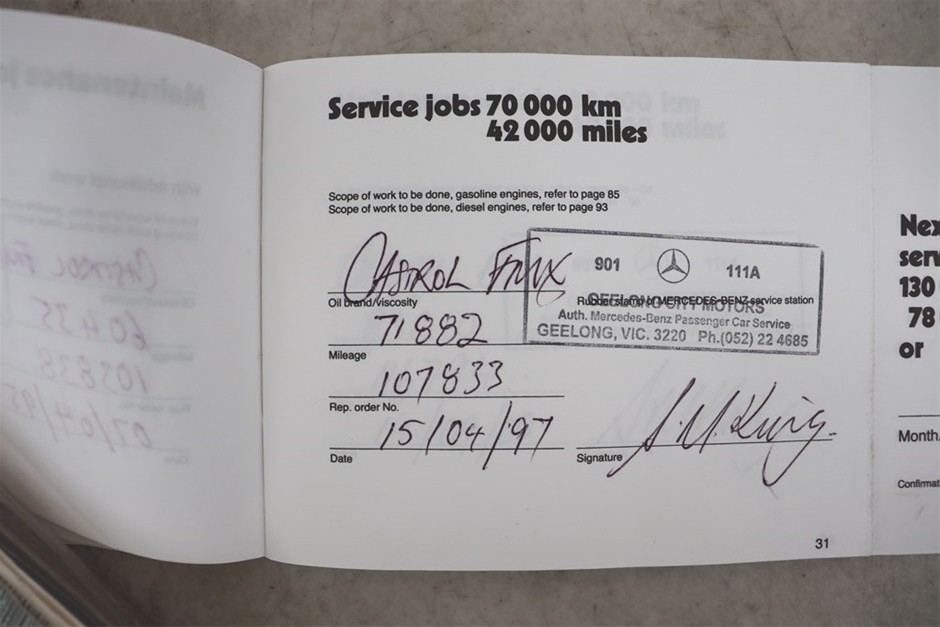 Service jobs 70 000 km
42 000 miles
Scope of work to be done, gasoline engines, refer to page 85
Scope of work to be done, diesel engines, refer to page 93
CASTROL
Oil brand/viscosity
901 111A
Rubber stamp of MERCEDES-BENZ service station
GEELONG CITY MOTORS
Auth. Mercedes-Benz Passenger Car Service
GEELONG, VIC. 3220 Ph.(052) 22 4685
71882
Mileage
107833
Rep. order No.
15/04/97
Date
Signature
31
Nex
serv
130
78
or
Month
Confirmat